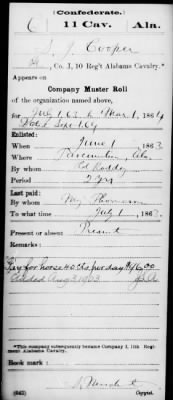 (Confederate.)
C 11 Cav. Ala.
J. Cooper
, Co. I, 10 Reg't Alabama Cavalry.*
Appears on
Company Muster Roll
of the organization named above,
for July 1, 63 to Mar. 1, 1864
Dated Sept 1, 64
Enlisted:
When June 1, 1863
Where , Ala.
By whom Roddey
Period 2 yrs
Last paid:
By whom Maj Thomason
To what time July 1, 1863
Present or absent Present
Remarks:
Pay for horse 40 cts per day $16.00
*This company subsequently became Company I, 11th Regiment Alabama Cavalry.
Book mark:
(642) Copyist.